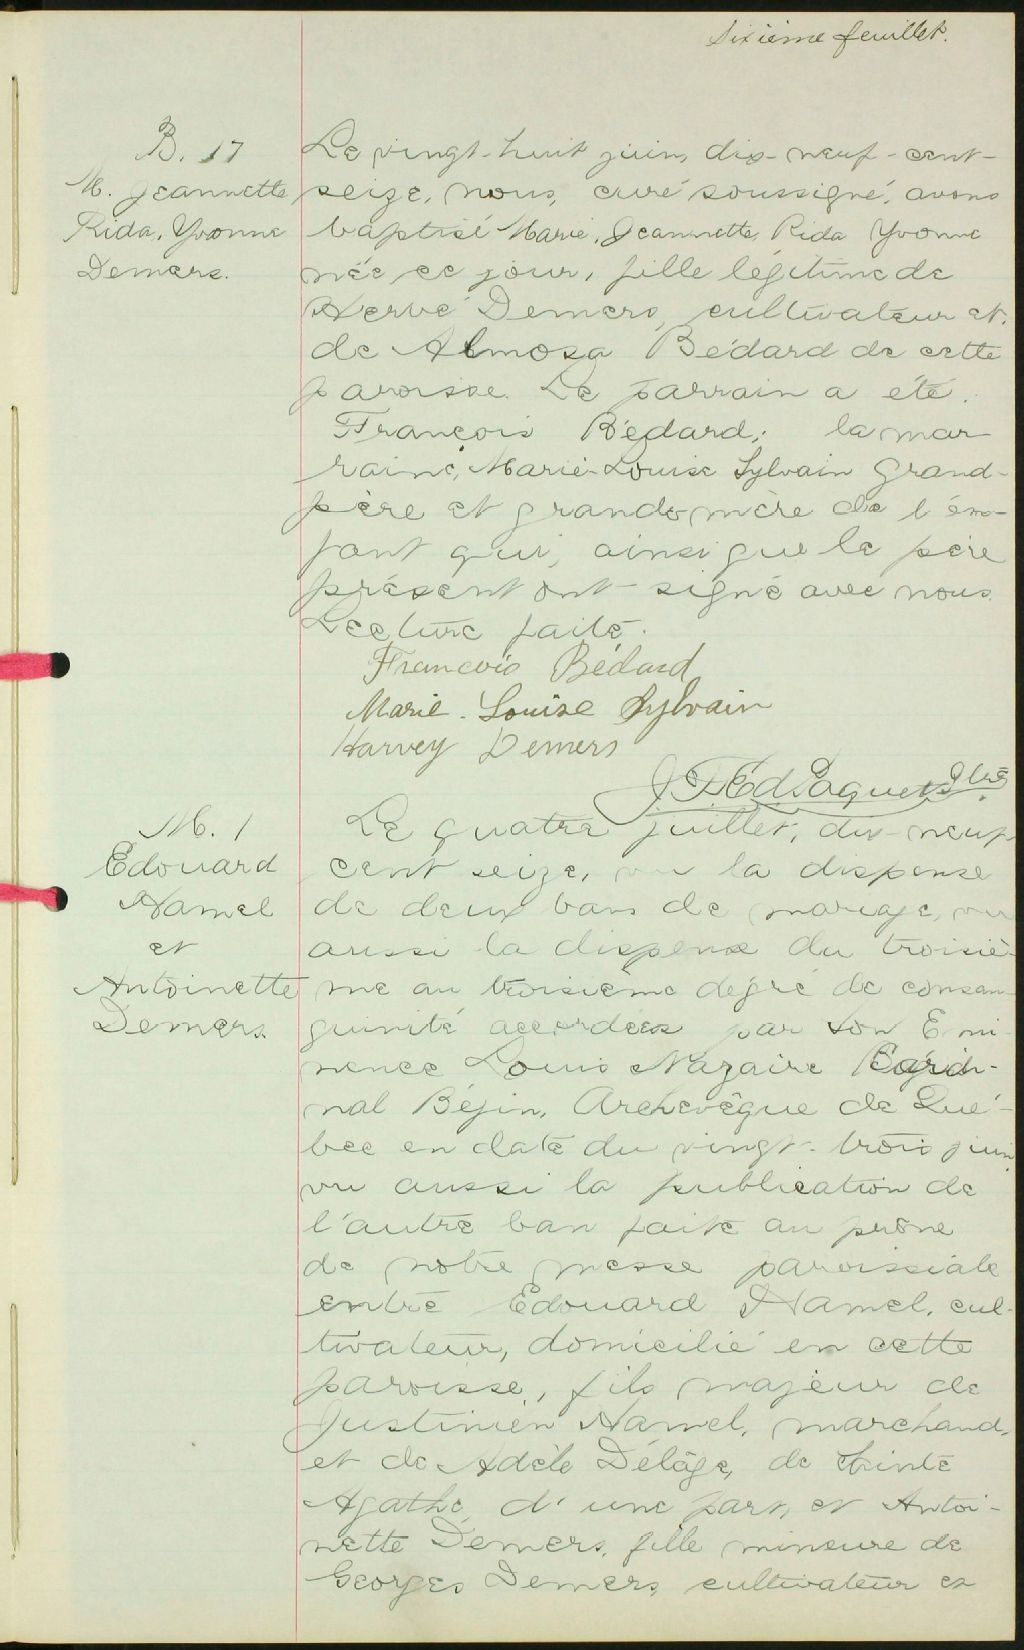 Sixième feuillet.
B. 17
M. Jeannette
Rida, Yvonne
Demers.
Le vingt-huit juin, dix-neuf-cent-
seize, nous, curé soussigné, avons
baptisé Marie, Jeannette, Rida Yvonne
née ce jour, fille légitime de
Hervé Demers, cultivateur et
de Almosa Bédard de cette
paroisse. Le parrain a été
François Bédard; la mar-
raine, Marie-Louise Sylvain grand-
père et grand-mère de l'en-
fant qui, ainsi que le père
présent ont signé avec nous.
Lecture faite.
Francois Bédard
Marie-Louise Sylvain
Harvey Demers
J. F. Ed Paquet Ptre
M. 1
Edouard
Hamel
et
Antoinette
Demers.
Le quatre juillet, dix-neuf
cent seize, vu la dispense
de deux bans de mariage, vu
aussi la dispense du troisiè-
me au troisième dégré de consan-
guinité accordées par Son Emi-
nence Louis Nazaire Cardi-
nal Bégin, Archevêque de Qué-
bec en date du vingt-trois juin,
vu aussi la publication de
l'autre ban faite au prône
de notre messe paroissiale
entre Edouard Hamel, cul-
tivateur, domicilié en cette
paroisse, fils majeur de
Justinien Hamel, marchand,
et de Adèle Délâge, de Sainte
Agathe, d'une part, et Antoi-
nette Demers, fille mineure de
Georges Demers, cultivateur et